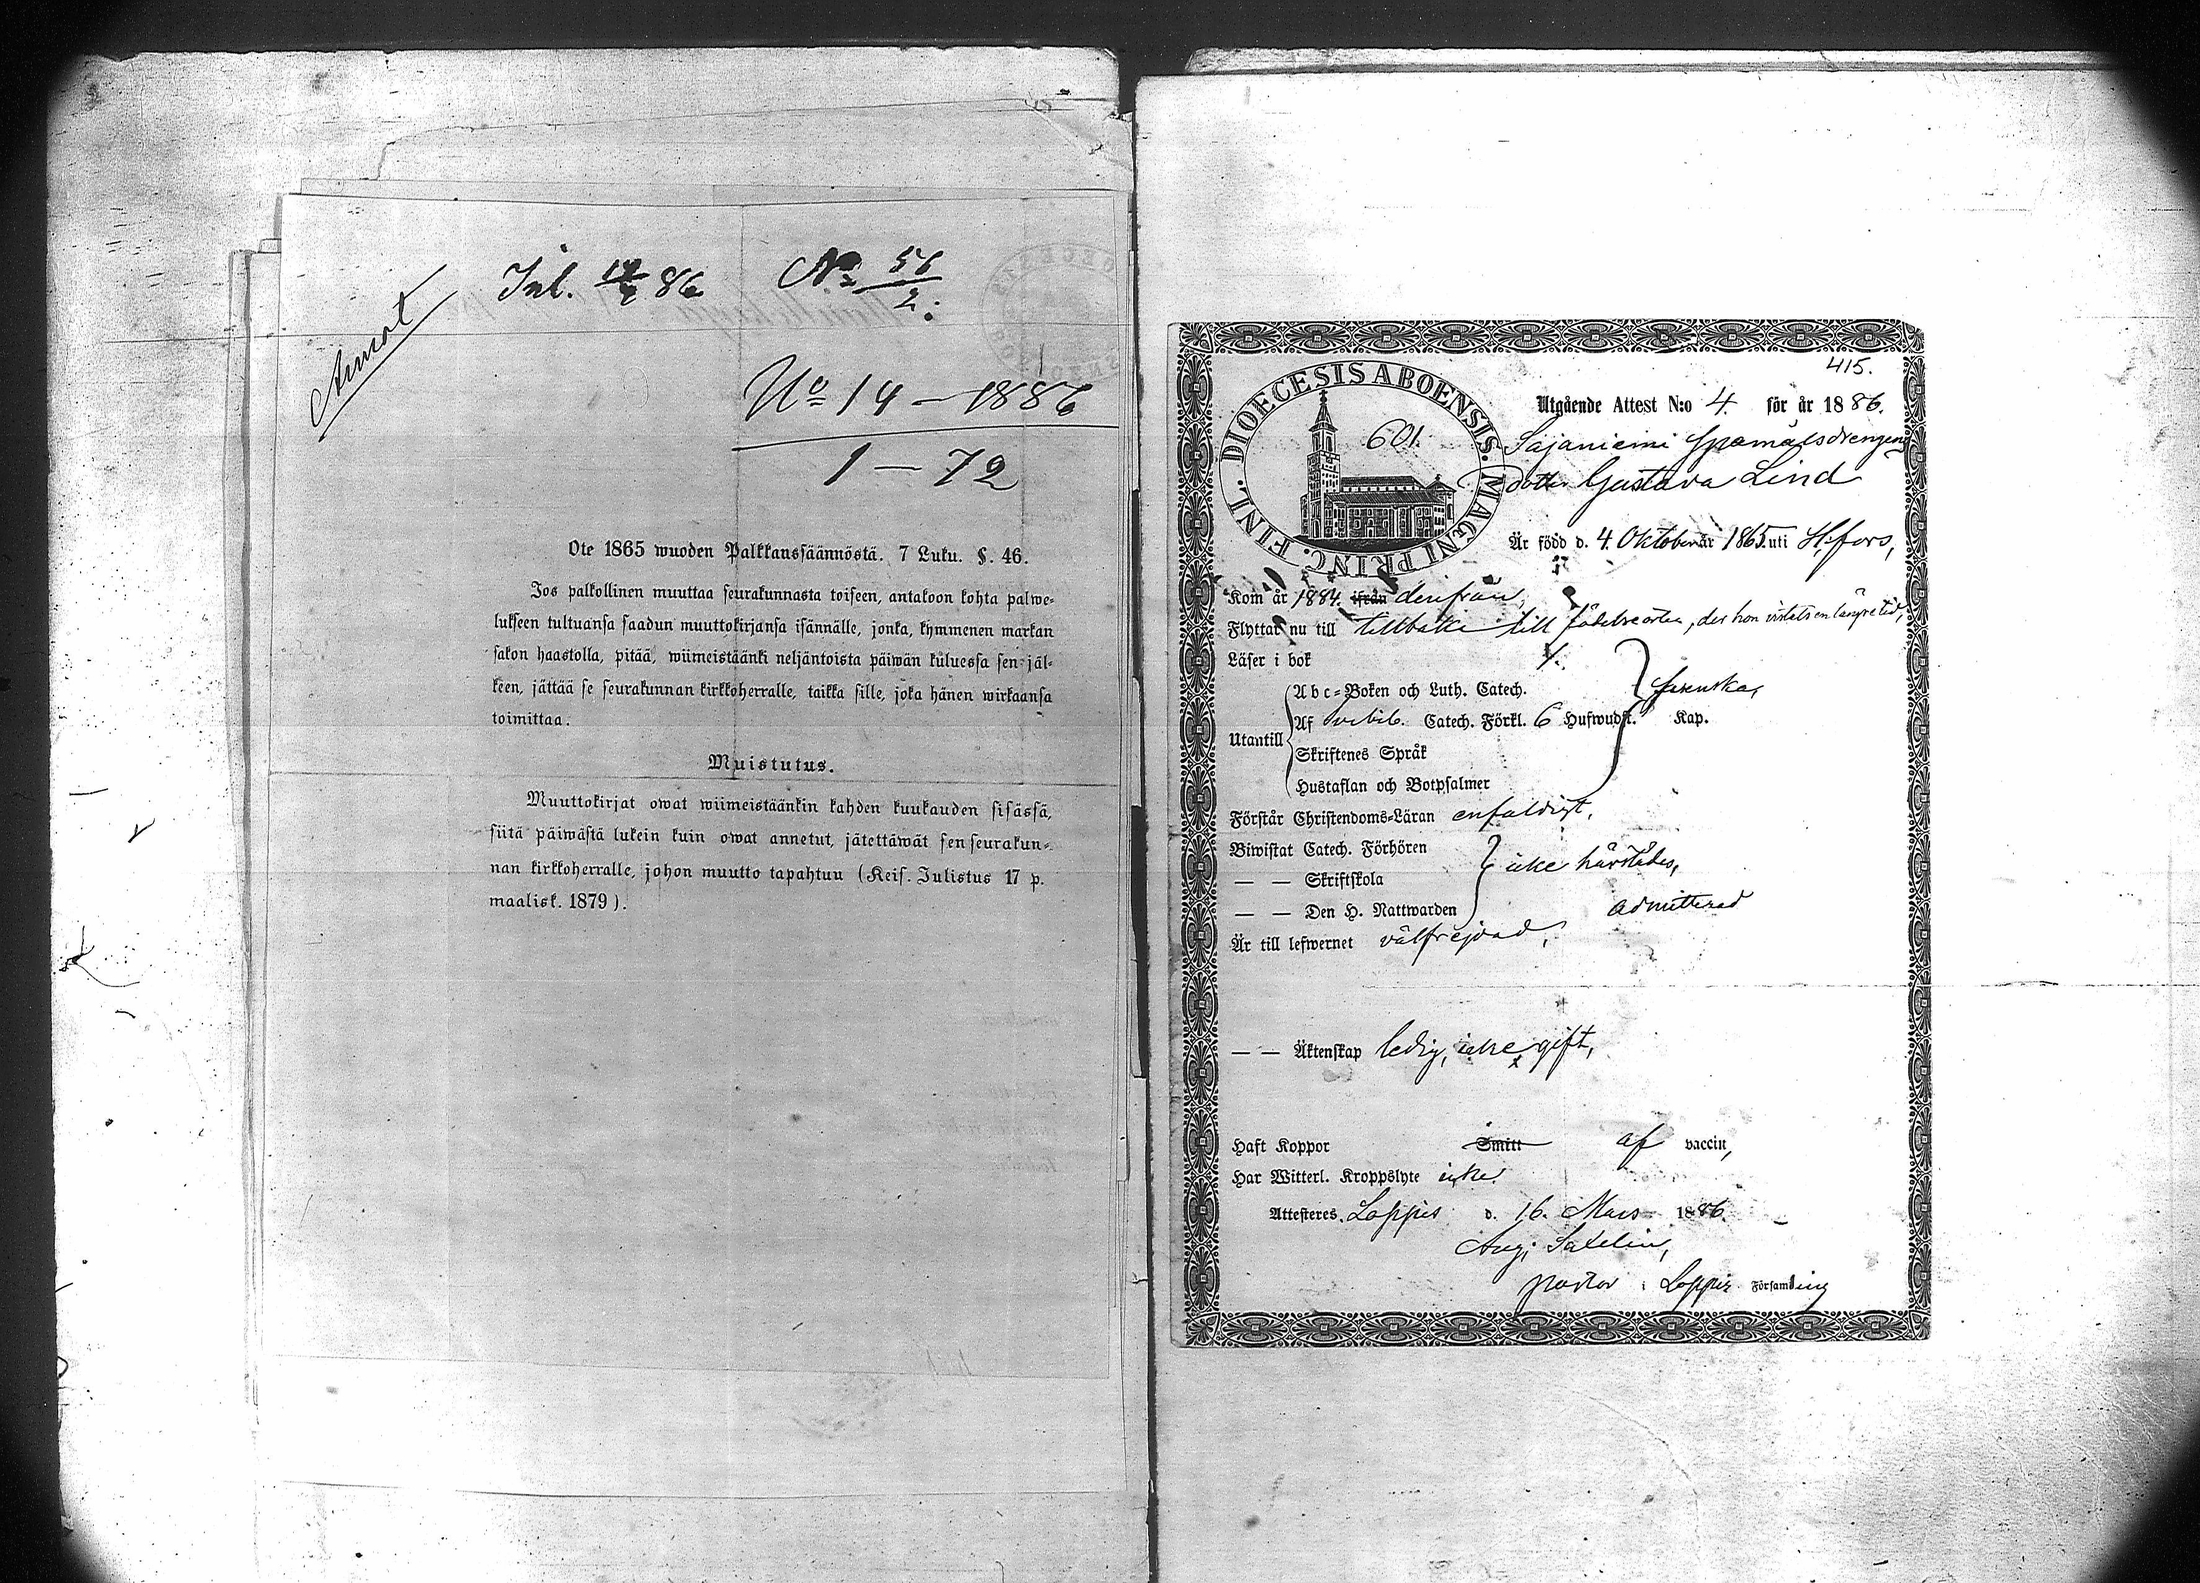 Inl. 86 No 56/2.
Nº 14 – 1886
1 – 72
Ote 1865 wuoden Palkkanssäännöstä. 7 Luku. §. 46.
Jos palkollinen muuttaa seurakunnasta toiseen, antakoon kohta palwe-
lukseen tultuansa saadun muuttokirjansa isännälle, jonka, kymmenen markan
sakon haastolla, pitää, wiimeistäänki neljäntoista päiwän kuluessa sen jäl-
keen, jättää se seurakunnan kirkkoherralle, taikka sille, joka hänen wirkaansa
toimittaa.
Muistutus.
Muuttokirjat owat wiimeistäänkin kahden kuukauden sisässä,
siitä päiwästä lukein kuin owat annetut, jätettäwät sen seurakun-
nan kirkkoherralle, johon muutto tapahtuu (Keis. Julistus 17 p.
maalisk. 1879).
415.
DIOECESIS ABOENSIS. MAGNI PRINC. FINL.
601.
Utgående Attest N:o 4. för år 1886.
Sajaniemi
dotter Gustava Lind
Är född d. 4. Oktober år 1865 uti H:fors,
Kom år 1884. ifrån derifrån,
Flyttar nu till tillbaka till födelseorten, der hon vistats en längre tid,
Läser i bok
Abc-Boken och Luth. Catech.
svenska,
Af Catech. Förkl. 6 Hufwudst. Kap.
Utantill
Skriftenes Språk
Hustaflan och Botpsalmer
Förstår Christendoms-Läran enfaldigt,
Biwistat Catech. Förhören
— — Skriftskola
icke härstädes,
— — Den H. Nattwarden
admitterad
Är till lefwernet välfrejdad,
— — Äktenskap ledig, icke gift,
Haft Koppor Smitt af vaccin,
Har Witterl. Kroppslyte icke.
Attesteres, Loppis d. 16. Mars 1886.
Aug.
pastor i Loppis Församling